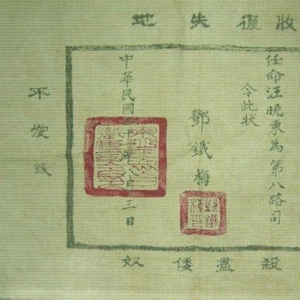 收復失地
任命汪曉東為第八路司
令此狀
鄧鐵梅
中華民國 年 月三日
不愛錢
殺盡倭奴